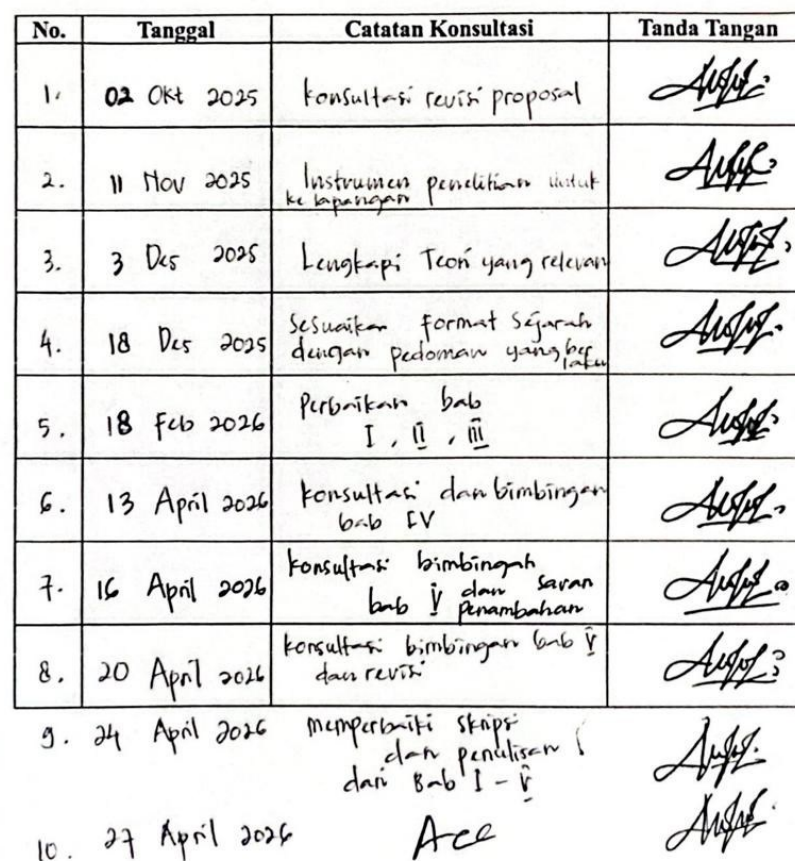 No. Tanggal Catatan Konsultasi Tanda Tangan
1. 02 Okt 2025 Konsultasi revisi proposal
2. 11 Nov 2025 Instrumen penelitian untuk
ke lapangan
3. 3 Des 2025 Lengkapi Teori yang relevan
4. 18 Des 2025 Sesuaikan format Sejarah
dengan pedoman yang ber
laku
5. 18 Feb 2026 Perbaikan bab
I, II, III
6. 13 April 2026 Konsultasi dan bimbingan
bab IV
7. 16 April 2026 Konsultasi bimbingan
bab V dan saran
penambahan
8. 20 April 2026 Konsultasi bimbingan bab V
dan revisi
9. 24 April 2026 memperbaiki skripsi
dan penulisan
dari Bab I - V
10. 27 April 2026 Acc